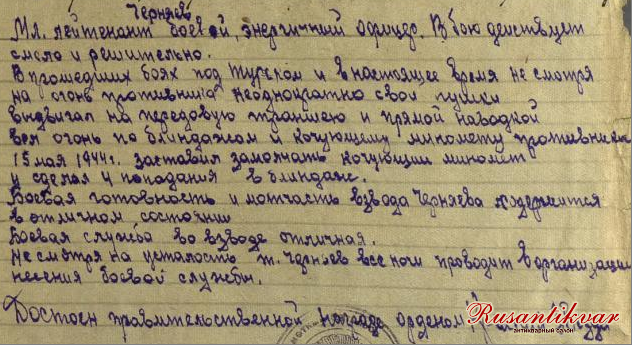 Черняев
Мл. лейтенант боевой, энергичный офицер. В бою действует
смело и решительно.
В прошедших боях под Турском и в настоящее время не смотря
на огонь противника неоднократно свои пушки
выдвигал на передовую траншею и прямой наводкой
вел огонь по блиндажам и кочующему миномету противника
15 мая 1944г. заставил замолчать кочующий миномет
и сделал 4 попадания в блиндаж.
Боевая готовность и матчасть взвода Черняева содержится
в отличном состоянии
Боевая служба во взводе отличная.
Не смотря на усталость т. Черняев все ночи проводит в организации
несения боевой службы.
Достоен правительственной награде орденом
Rusantikvar
антикварный салон